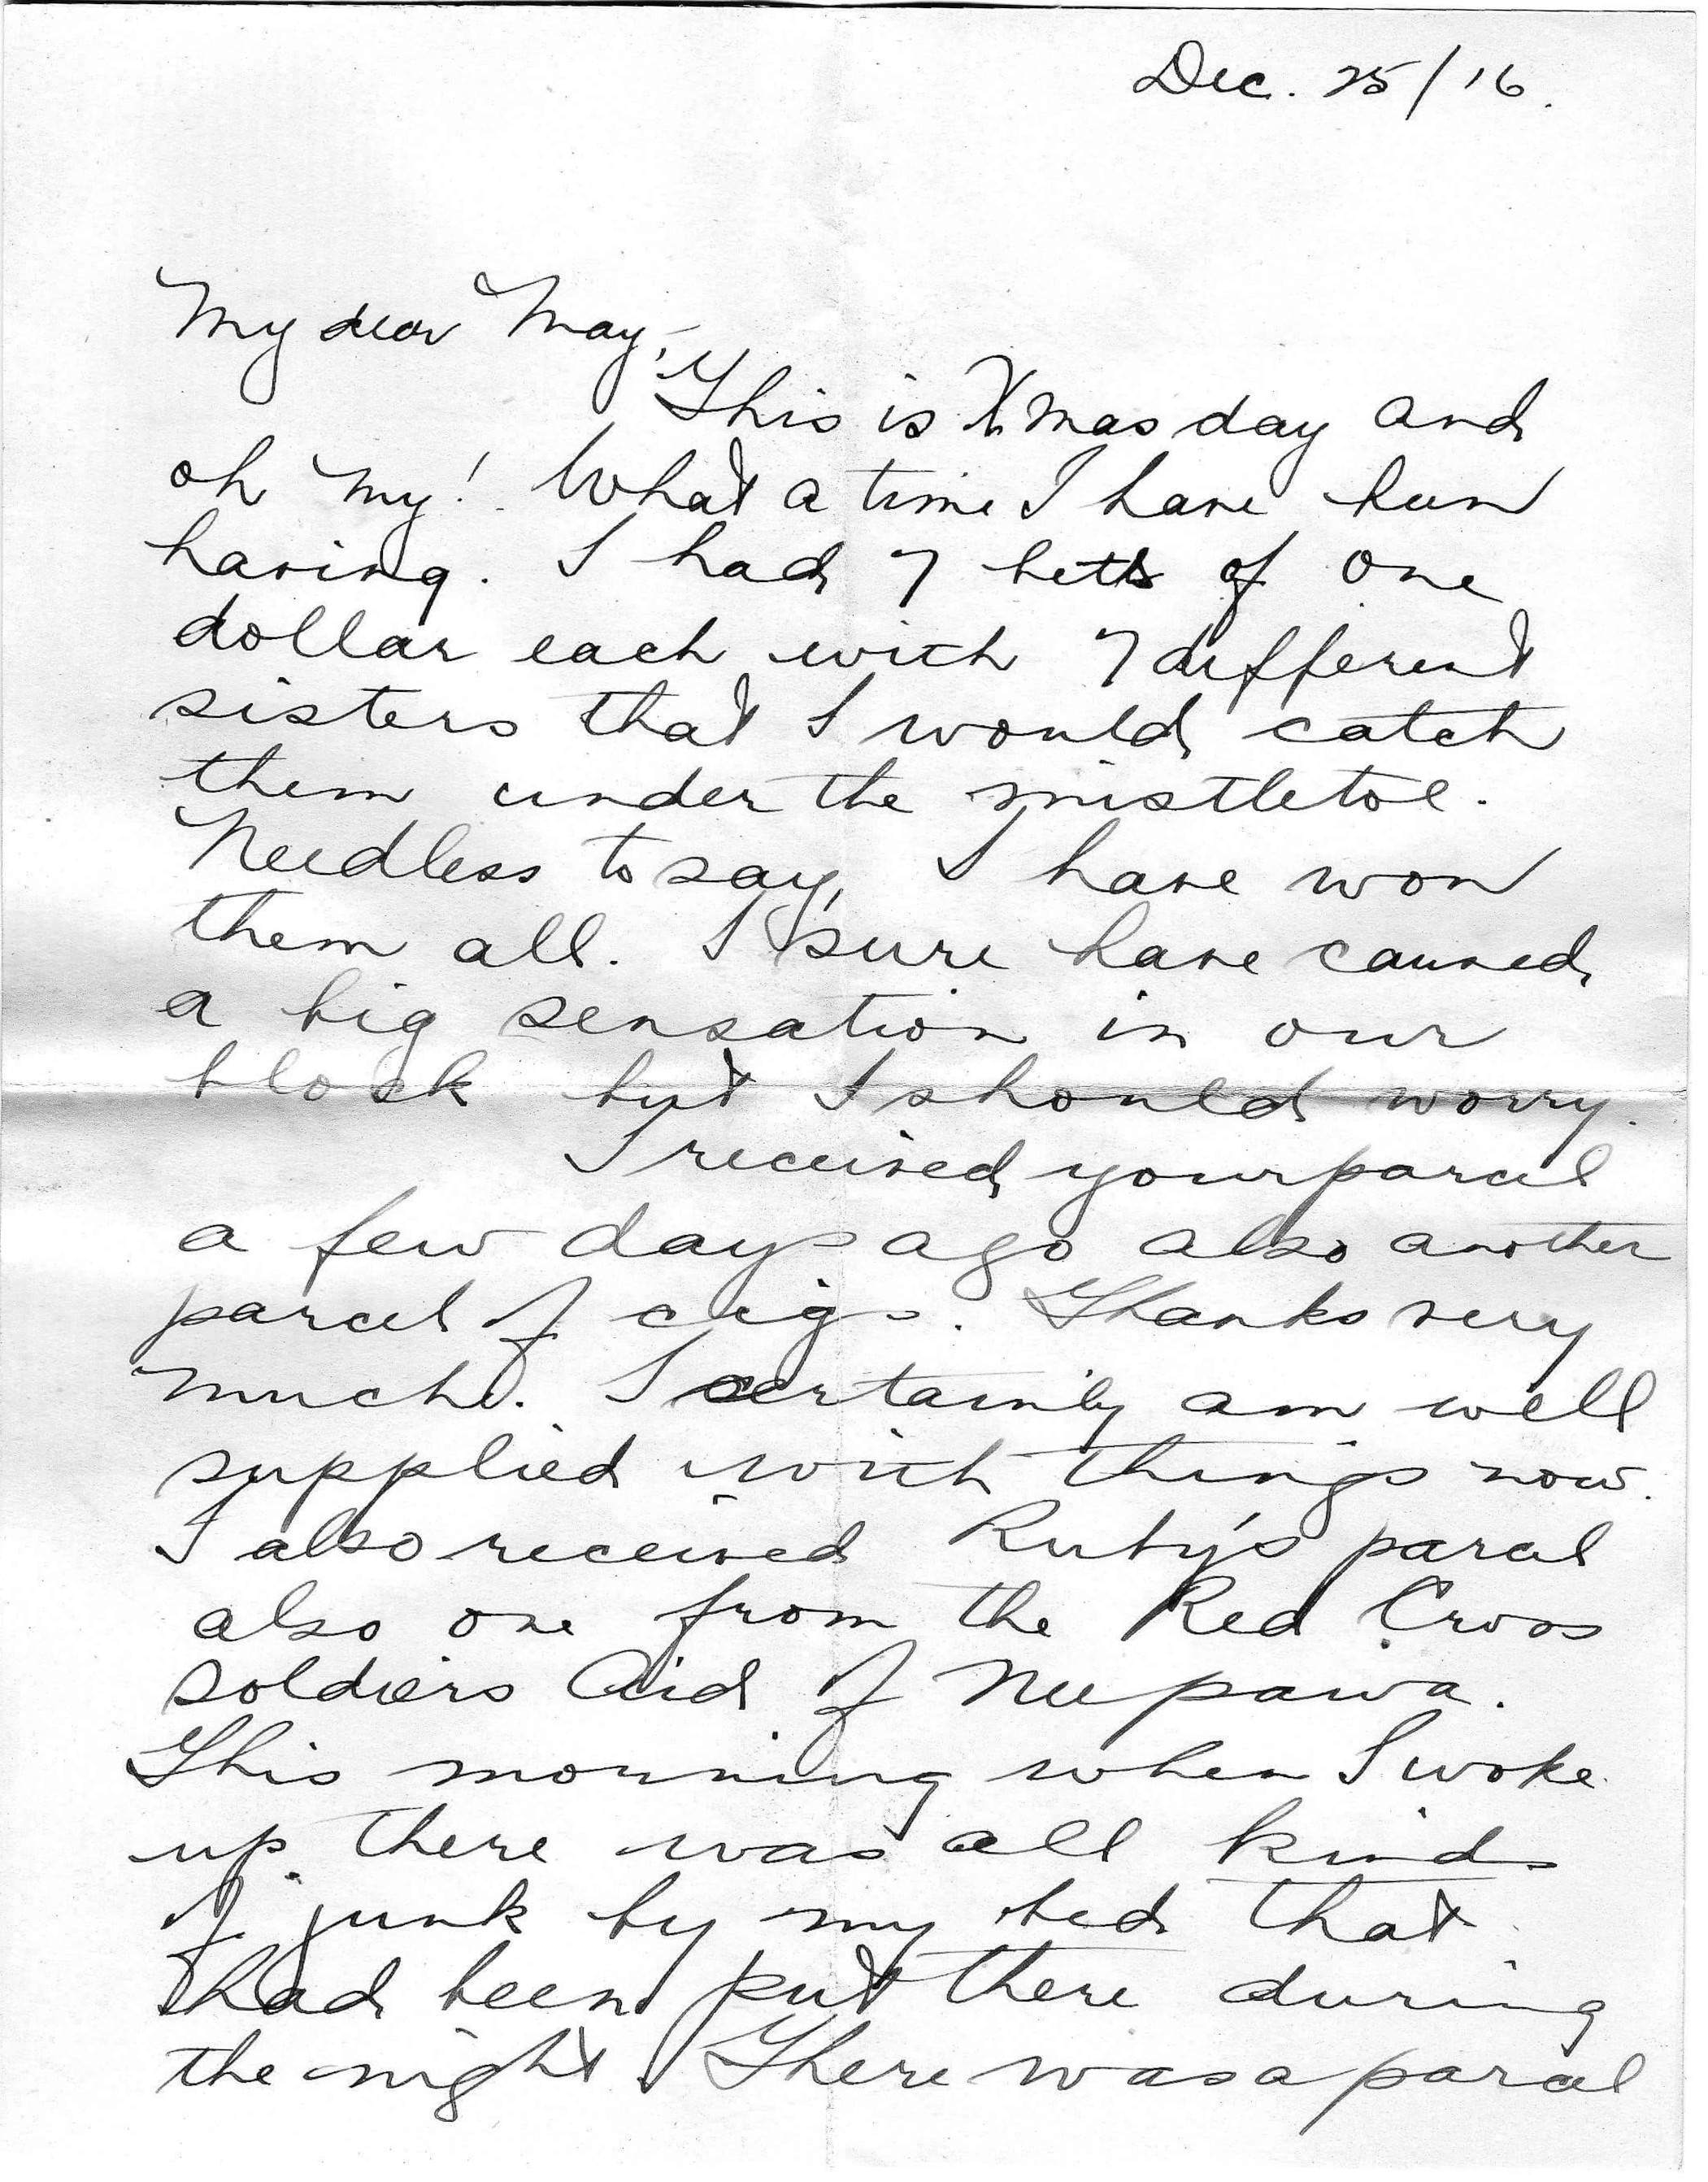 Dec. 25/16.
My dear May,
This is Xmas day and
oh my! What a time I have been
having. I had 7 bets of one
dollar each with 7 different
sisters that I would catch
them under the mistletoe.
Needless to say, I have won
them all. I sure have caused
a big sensation in our
block but I should worry.
I received your parcel
a few days ago also another
parcel of cigs. Thanks very
much. I certainly am well
supplied with things now.
I also received Ruby's parcel
also one from the Red Cross
soldiers Aid of Neepawa.
This morning when I woke
up there was all kinds
of junk by my bed that
had been put there during
the night. There was a parcel